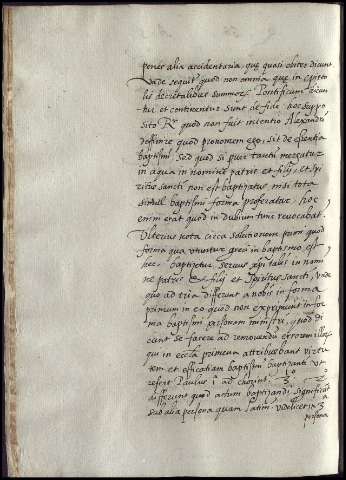 ponere alia accidentaria, que quasi obiter dicunt
Unde sequit quod non omnia que in epistolis
lis decretalibus summor. Pontificum dicun
tur et continentur sunt de fide. hoc suppo
sito R. quod non fuit intentio Alexandri
definire quod pronomen ego, sit de essentia
baptismi sed quod si puer tantu mergatur
in aqua in nomine patris et filij, et spi
ritus sancti non est baptizatus nisi tota
simul baptismi forma proferatur. hoc
enim erat quod in dubium tunc revocabat.
Ulterius nota circa solutionem priori quod
forma qua utuntur greci in baptismo est
hec. baptizetur servus xpi talis in nomi
ne patris & filij et Spiritus sancti, vide
quo ad tria differunt a nobis in forma
primum in eo quod non exprimunt in for
ma baptismi personam ministri, quod di
cunt se facere ad removendu errorem illor.
qui in eccla primeva attribuebant virtu
tem et efficatiam baptismi baptizanti ut
refert Paulus 1 ad chorint. 3.
differunt quod actum baptizandi significat
sub alia persona quam latini. videlicet in 3
persona